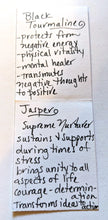 Black
Tourmaline
-protects from
negative energy
physical vitality
mental healer
-transmutes
negative thoughts
to positive
Jasper
Supreme Nurturer
sustains & supports
during times of
stress
brings unity to all
aspects of life
courage-determin-
ation
Transforms ideas to